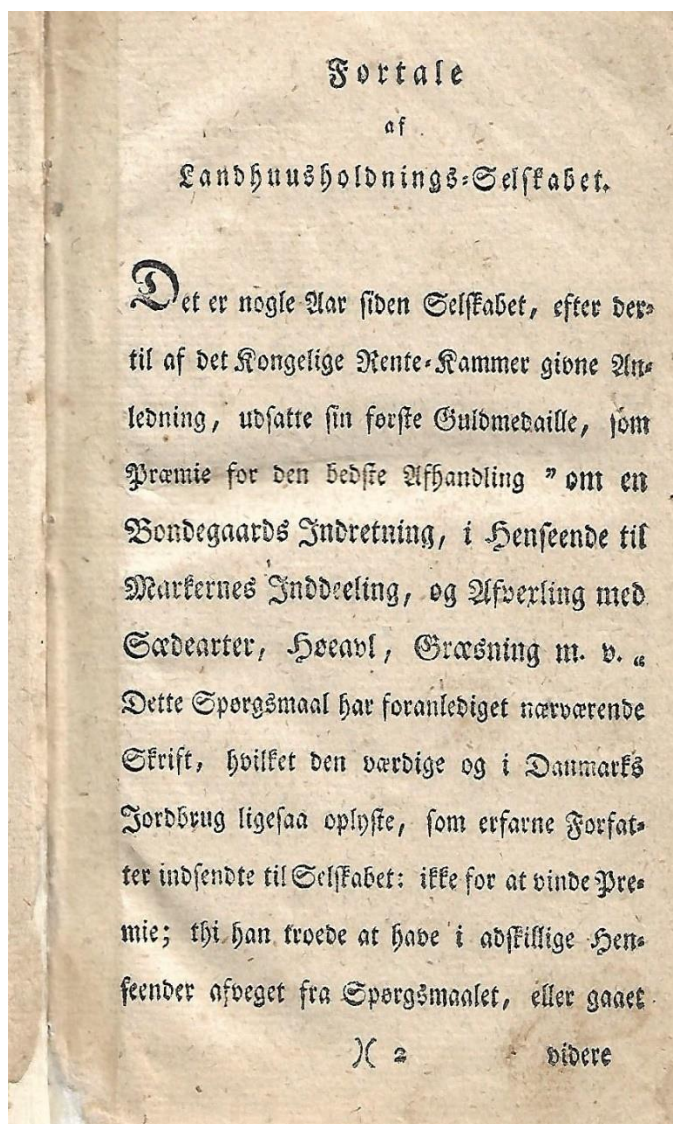 Fortale
af
Landhuusholdnings-Selskabet.
Det er nogle Aar siden Selskabet, efter der-
til af det Kongelige Rente-Kammer givne An-
ledning, udsatte sin første Guldmedaille, som
Præmie for den bedste Afhandling ” om en
Bondegaards Indretning, i Henseende til
Markernes Inddeeling, og Afvexling med
Sædearter, Høeavl, Græsning m. v. “
Dette Spørgsmaal har foranlediget nærværende
Skrift, hvilket den værdige og i Danmarks
Jordbrug ligesaa oplyste, som erfarne Forfat-
ter indsendte til Selskabet: ikke for at vinde Pre-
mie; thi han troede at have i adskillige Hen-
seender afveget fra Spørgsmaalet, eller gaaet
)( 2 videre